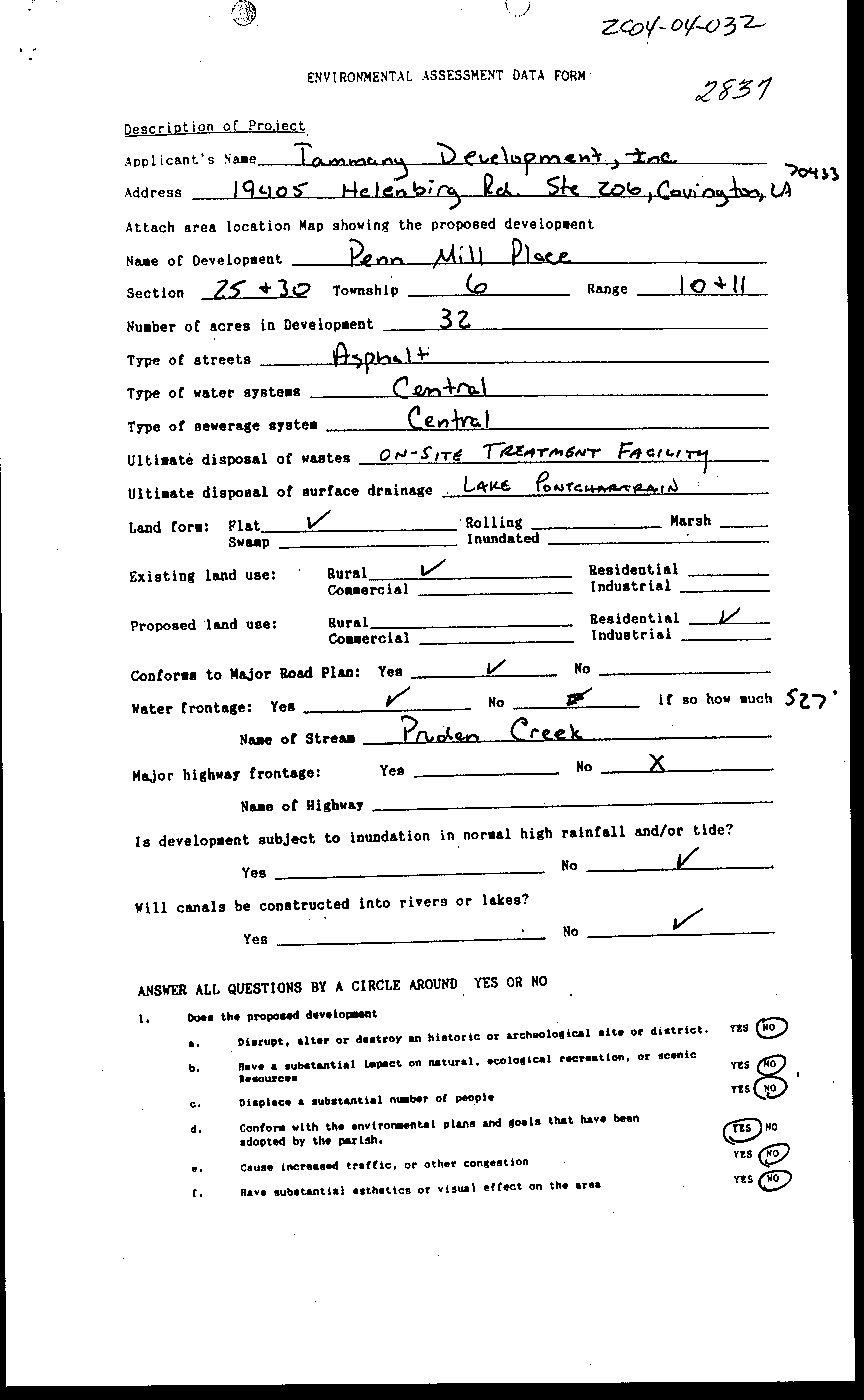 2004-04-032
ENVIRONMENTAL ASSESSMENT DATA FORM
2837
Description of Project
Applicant's Name Tammany Development, Inc.
Address 19405 Helenbirg Rd. Ste 206, Covington, LA 70433
Attach area location Map showing the proposed development
Name of Development Penn Mill Place
Section 25 + 30 Township 6 Range 10 + 11
Number of acres in Development 32
Type of streets Asphalt
Type of water systems Central
Type of sewerage system Central
Ultimate disposal of wastes ON-SITE TREATMENT FACILITY
Ultimate disposal of surface drainage LAKE PONTCHARTRAIN
Land form: Flat ✓ Rolling Marsh
Swamp Inundated
Existing land use: Rural ✓ Residential
Commercial Industrial
Proposed land use: Rural Residential ✓
Commercial Industrial
Conforms to Major Road Plan: Yes ✓ No
Water frontage: Yes ✓ No if so how much 527'
Name of Stream Pruden Creek
Major highway frontage: Yes No X
Name of Highway
Is development subject to inundation in normal high rainfall and/or tide?
Yes No ✓
Will canals be constructed into rivers or lakes?
Yes No ✓
ANSWER ALL QUESTIONS BY A CIRCLE AROUND YES OR NO
1. Does the proposed development
a. Disrupt, alter or destroy an historic or archeological site or district. YES NO
b. Have a substantial impact on natural, ecological recreation, or scenic YES NO
Resources
c. Displace a substantial number of people YES NO
d. Conform with the environmental plans and goals that have been YES NO
adopted by the parish.
e. Cause increased traffic, or other congestion YES NO
f. Have substantial esthetics or visual effect on the area YES NO